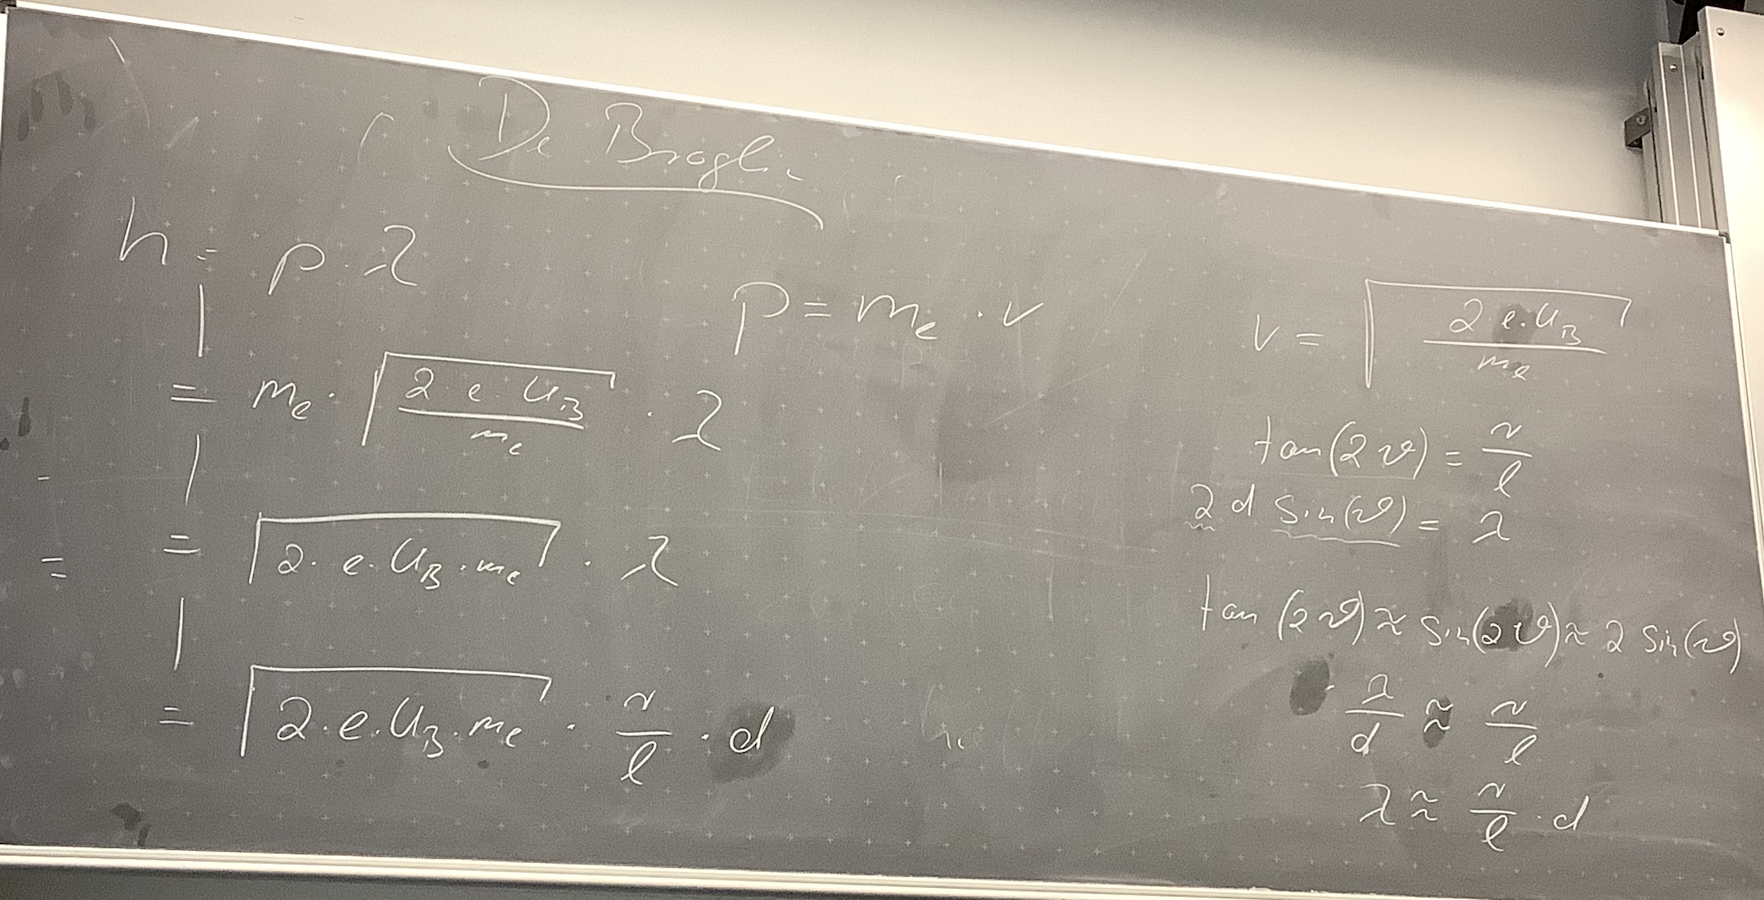 De Broglie
h = p · λ
p = mₑ · v
= mₑ · √(2·e·U_B / mₑ) · λ
= √(2·e·U_B·mₑ) · λ
= √(2·e·U_B·mₑ) · r/l · d
v = √(2·e·U_B / mₑ)
tan(2ϑ) = r/l
2 d sin(ϑ) = λ
tan(2ϑ) ≈ sin(2ϑ) ≈ 2 sin(ϑ)
λ/d ≈ r/l
λ ≈ r/l · d